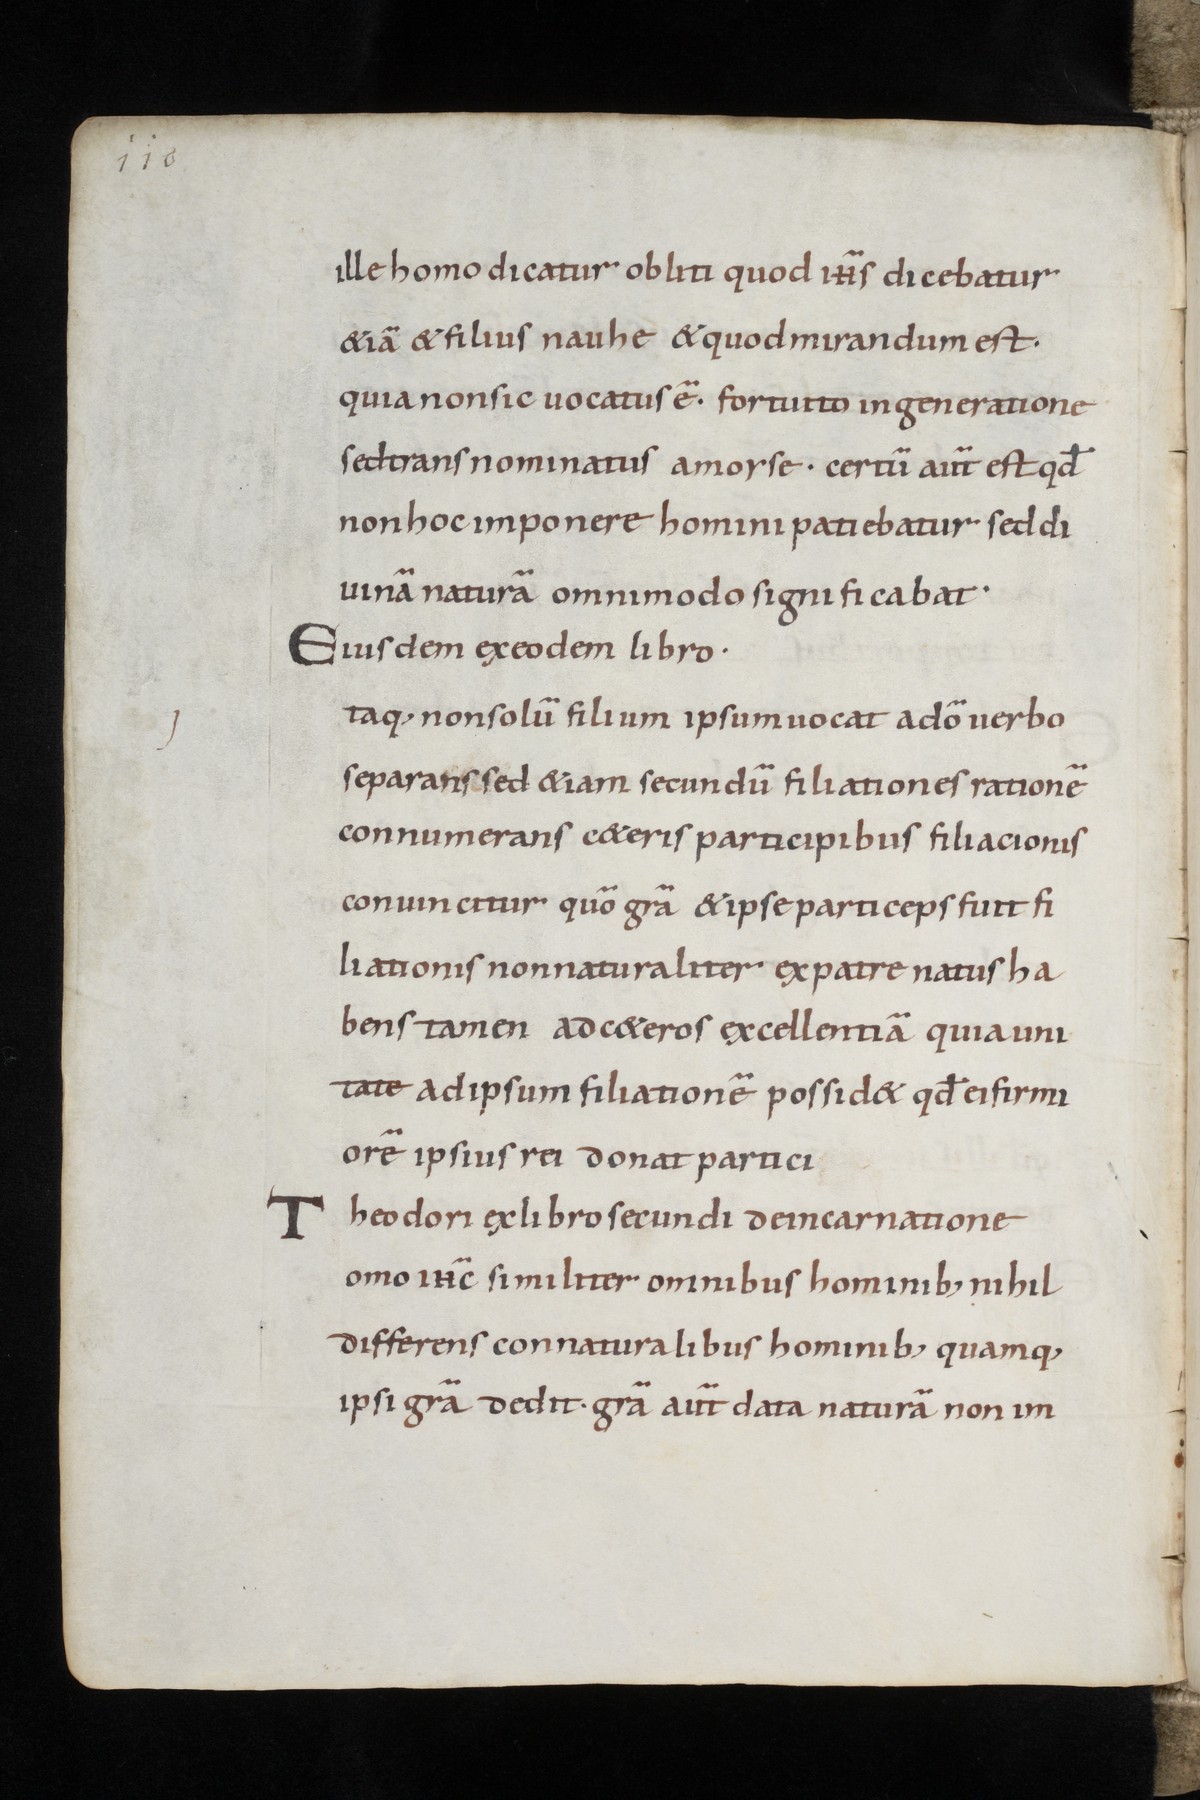 118
ille homo dicatur obliti quod ih̄s dicebatur
&iā & filius nauhe & quod mirandum est·
quia non sic uocatus ē· fortuito in generatione
sed trans nominatus amorse· certū aūt est qđ
non hoc imponere homini patiebatur sed di
uinā naturā omnimodo significabat·
Eiusdem ex eodem libro·
taq, non solū filium ipsum uocat a dō uerbo
separans sed &iam secundū filiationes rationē
connumerans c&eris participibus filiacionis
conuincitur quō grā & ipse particeps fuit fi
liationis non naturaliter ex patre natus ha
bens tamen ad c&eros excellentiā quia uni
tate ad ipsum filiationē possid& qđ ei firmi
orē ipsius rei donat partici
Theodori ex libro secundi de incarnatione
omo ih̄c similiter omnibus hominib, nihil
differens connaturalibus hominib, quamq,
ipsi grā dedit· grā aūt data naturā non im